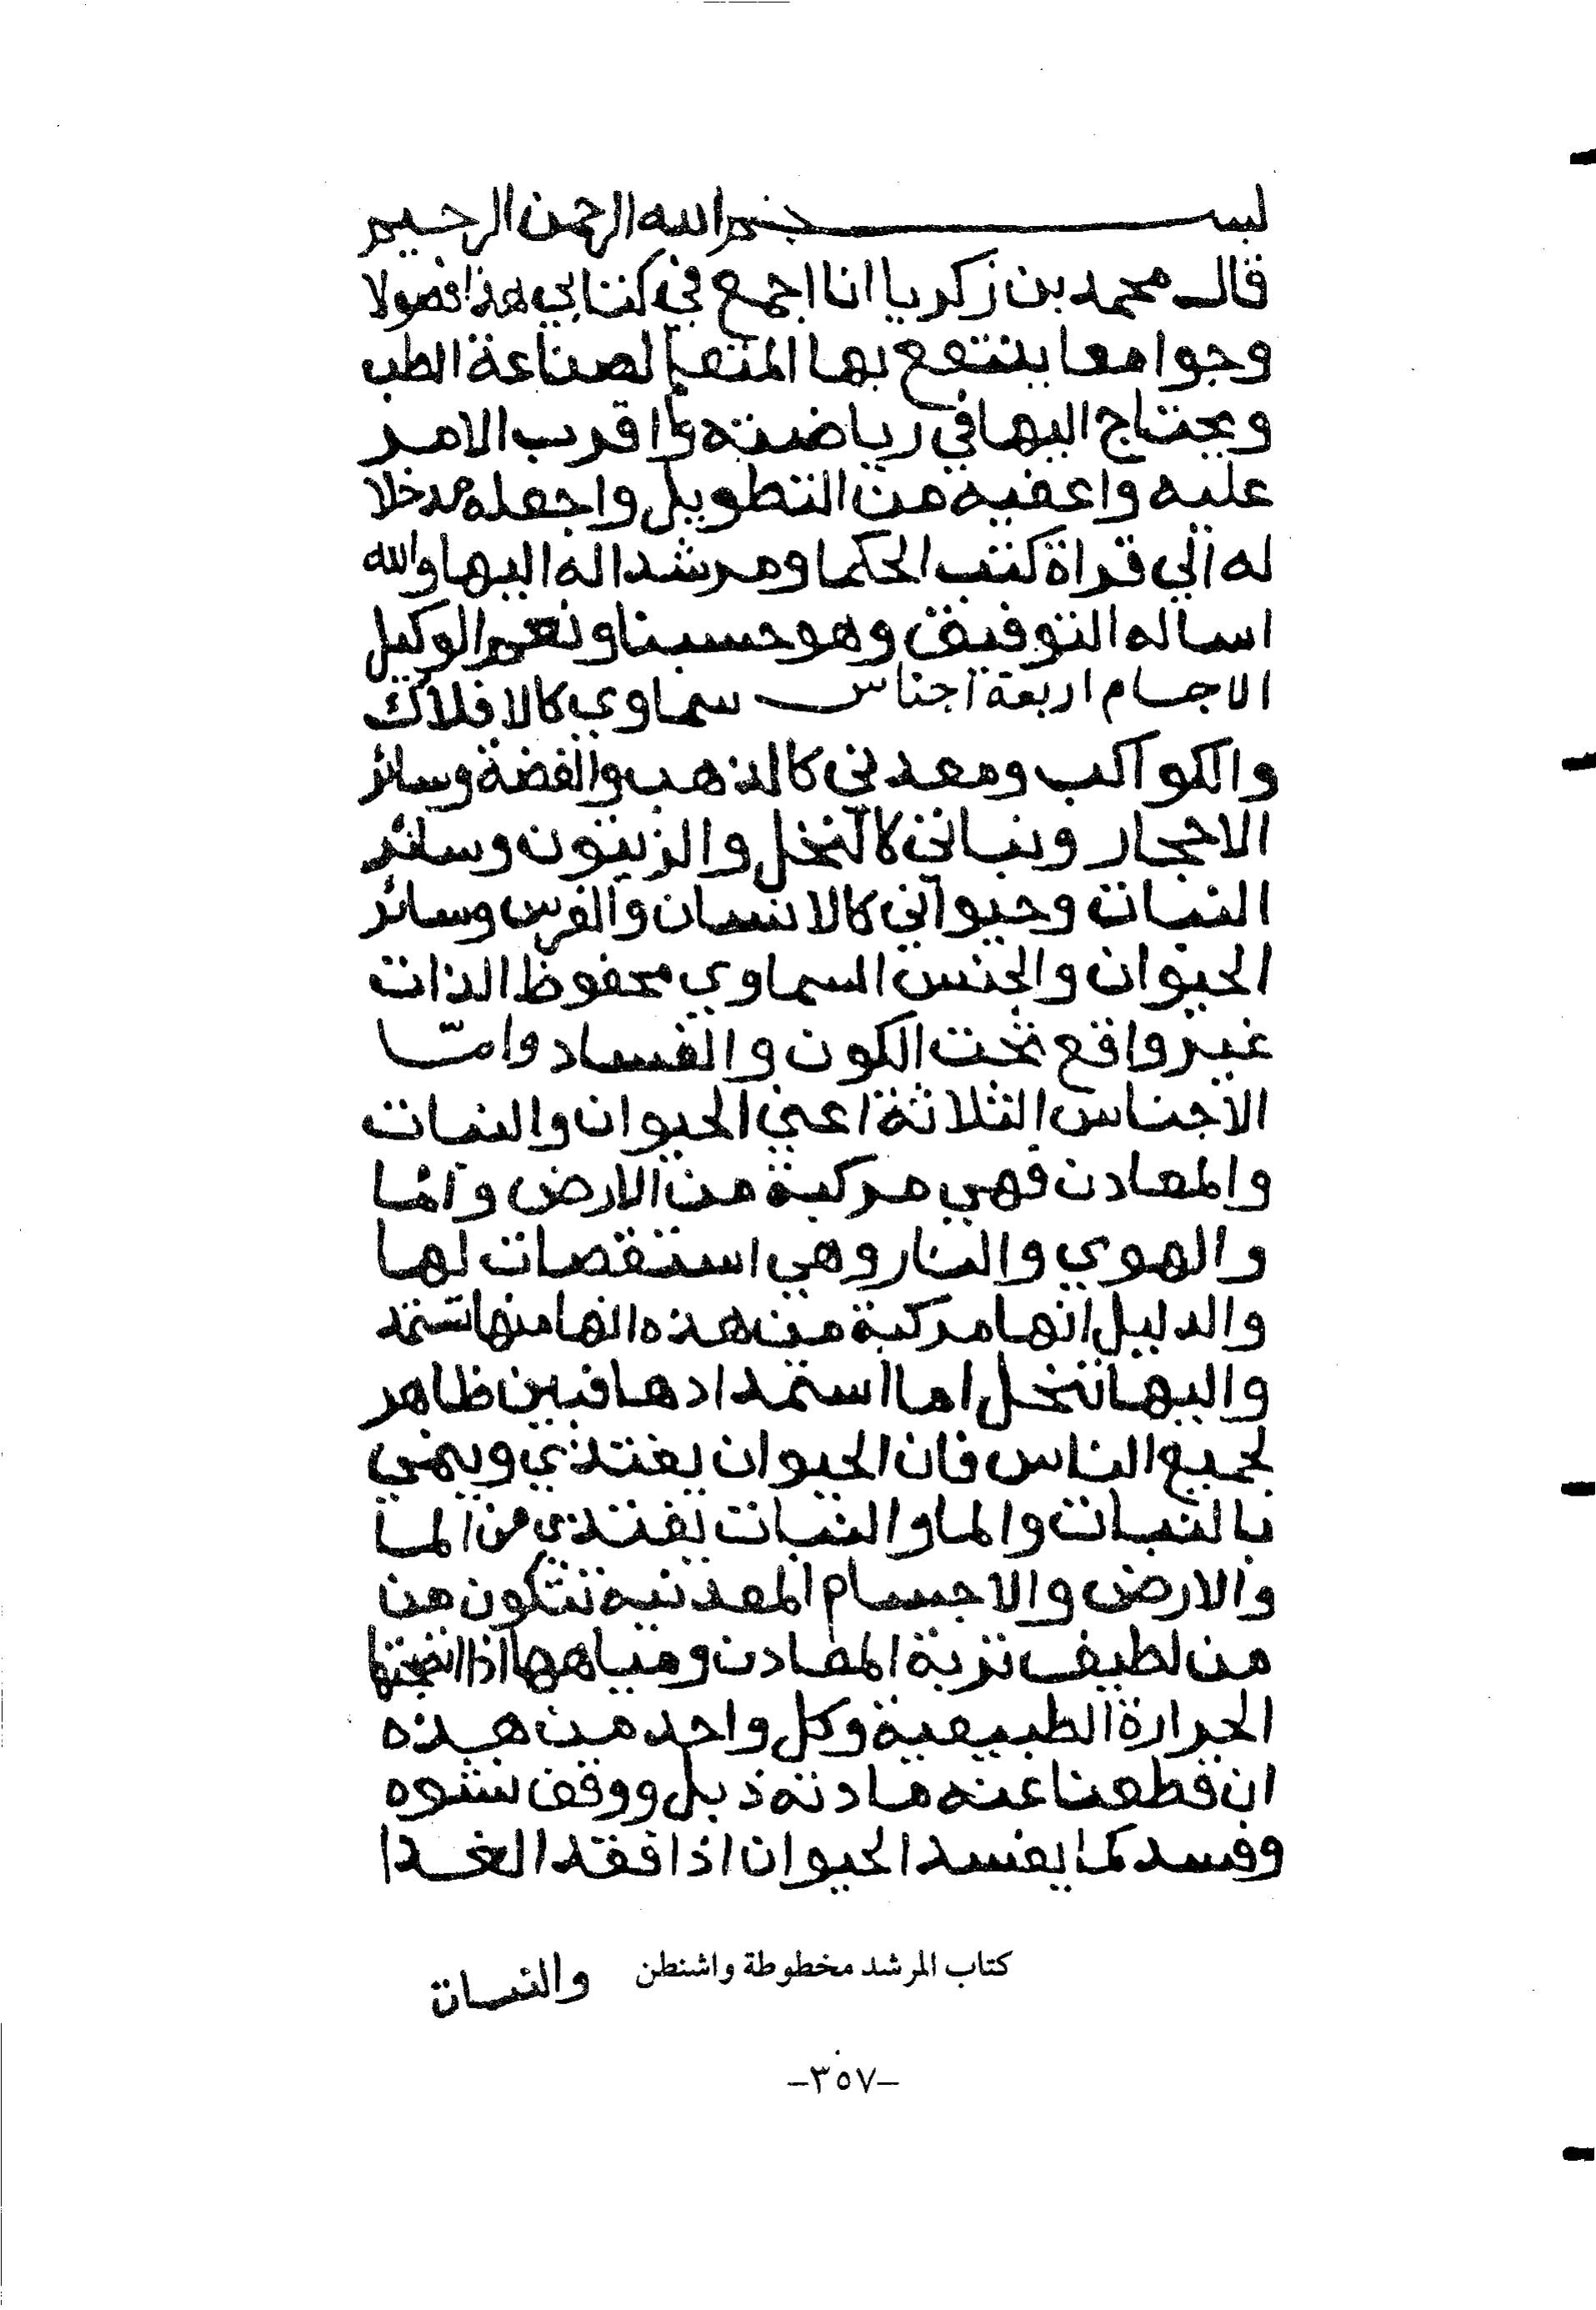 بسم الله الرحمن الرحيم
قال محمد بن زكريا انا اجمع في كتابي هذا فصولا
وجوامعا ينتفع بها المتعلم لصناعة الطب
ويحتاج اليها في رياضته واقرب الامر
عليه واعفيه من التطويل واجعله مدخلا
له الي قراة كتب الحكما ومرشدا له اليها والله
اساله التوفيق وهو حسبنا ونعم الوكيل
الاجسام اربعة اجناس سماوي كالافلاك
والكواكب ومعدني كالذهب والفضة وسائر
الاحجار ونباتي كالنخل والزيتون وسائر
النبات وحيواني كالانسان والفرس وسائر
الحيوان والجنس السماوي محفوظ الذات
غير واقع تحت الكون والفساد وامّا
الاجناس الثلاثة اعني الحيوان والنبات
والمعادن فهي مركبة من الارض والما
والهوي والنار وهي استقصات لها
والدليل انها مركبة من هذه انها منها تستمد
واليها تنحل اما استمدادها فبين ظاهر
لجميع الناس فان الحيوان يغتذي وينمي
بالنبات والما والنبات يغتذي من الما
والارض والاجسام المعدنيه تتكون من
من لطيف تربة المعادن ومياهها اذا انضجتها
الحرارة الطبيعية وكل واحد من هذه
ان قطعنا عنه مادته ذبل ووقف نشوه
وفسد كما يفسد الحيوان اذا فقد الغدا
والنبات
كتاب المرشد مخطوطة واشنطن
-٣٥٧-